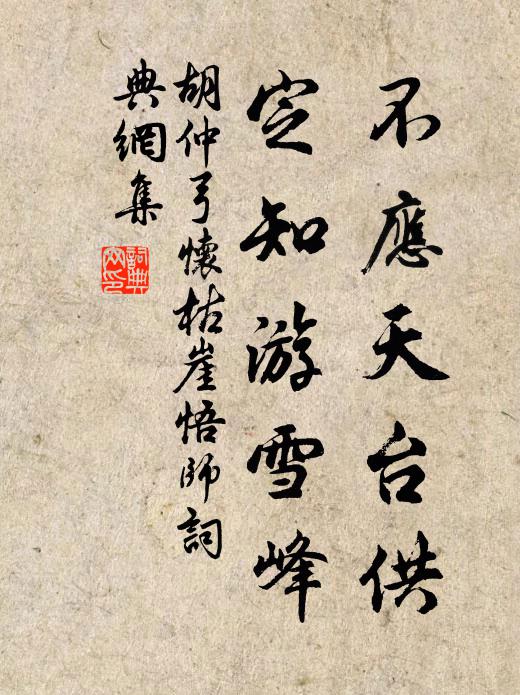 不應天台供
定知游雪峰
胡仲弓懷枯崖悟師詞
典網集
詞典
网印